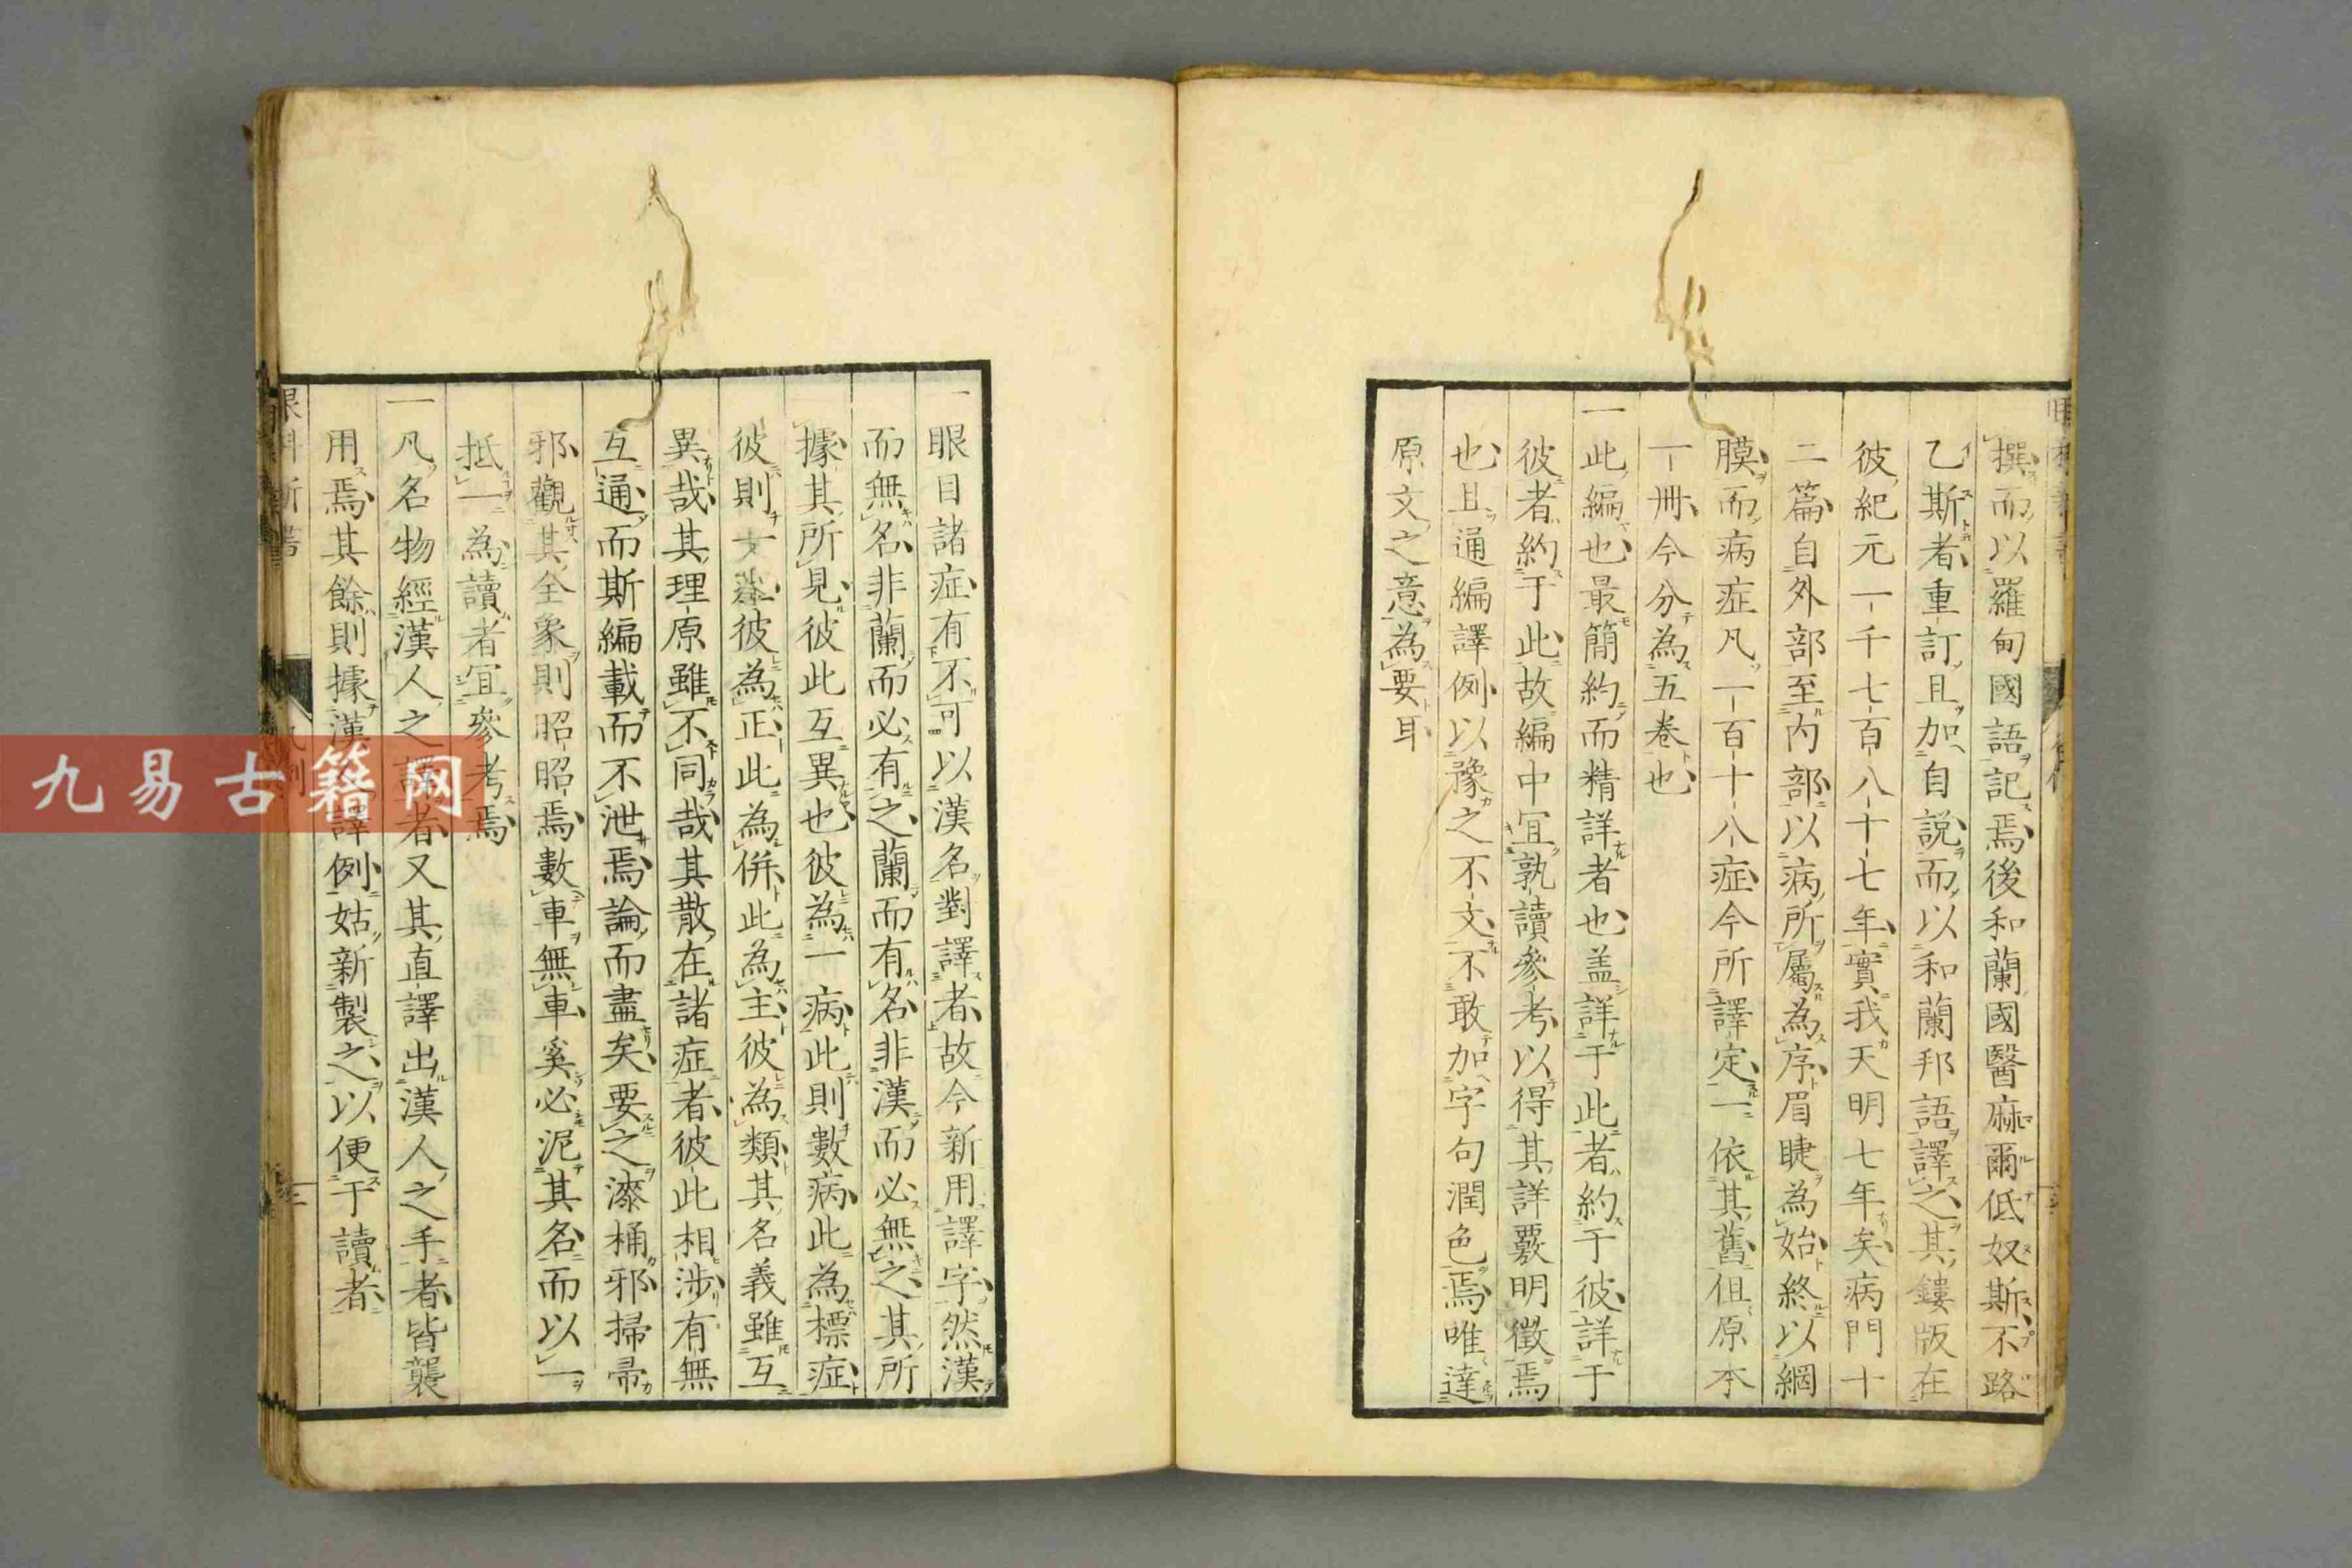 撰而以羅甸國語記焉後和蘭國醫麻爾低奴斯不路
乙斯者重訂且加自説而以和蘭邦語譯之其鏤版在
彼紀元一千七百八十七年實我天明七年矣病門十
二篇自外部至内部以病所屬為序眉睫為始終以網
膜而病症凡一百十八症今所譯定一依其舊但原本
一冊今分為五卷也
一此編也最簡約而精詳者也盖詳于此者約于彼詳于
彼者約于此故編中宜孰讀參考以得其詳覈明徵焉
也且通編譯例以豫之不文不敢加字句潤色焉唯達
原文之意為要耳
一眼目諸症有不可以漢名對譯者故今新用譯字然漢
而無名非蘭而必有之蘭而有名非漢而必無之其所
據其所見彼此互異也彼為一病此則數病此為標症
彼則本症彼為正此為併此為主彼為類其名義雖互
異哉其理原雖不同哉其散在諸症者彼此相涉有無
互通而斯編載而不泄焉論而盡矣要之漆桶邪掃帚
邪觀其全象則昭昭焉數車無車奚必泥其名而以一
抵一為讀者宜參考焉
一凡名物經漢人之譯者又其直譯出漢人之手者皆襲
用焉其餘則據漢譯例姑新製之以便于讀者
眼科新書
凡例
三
九易古籍网